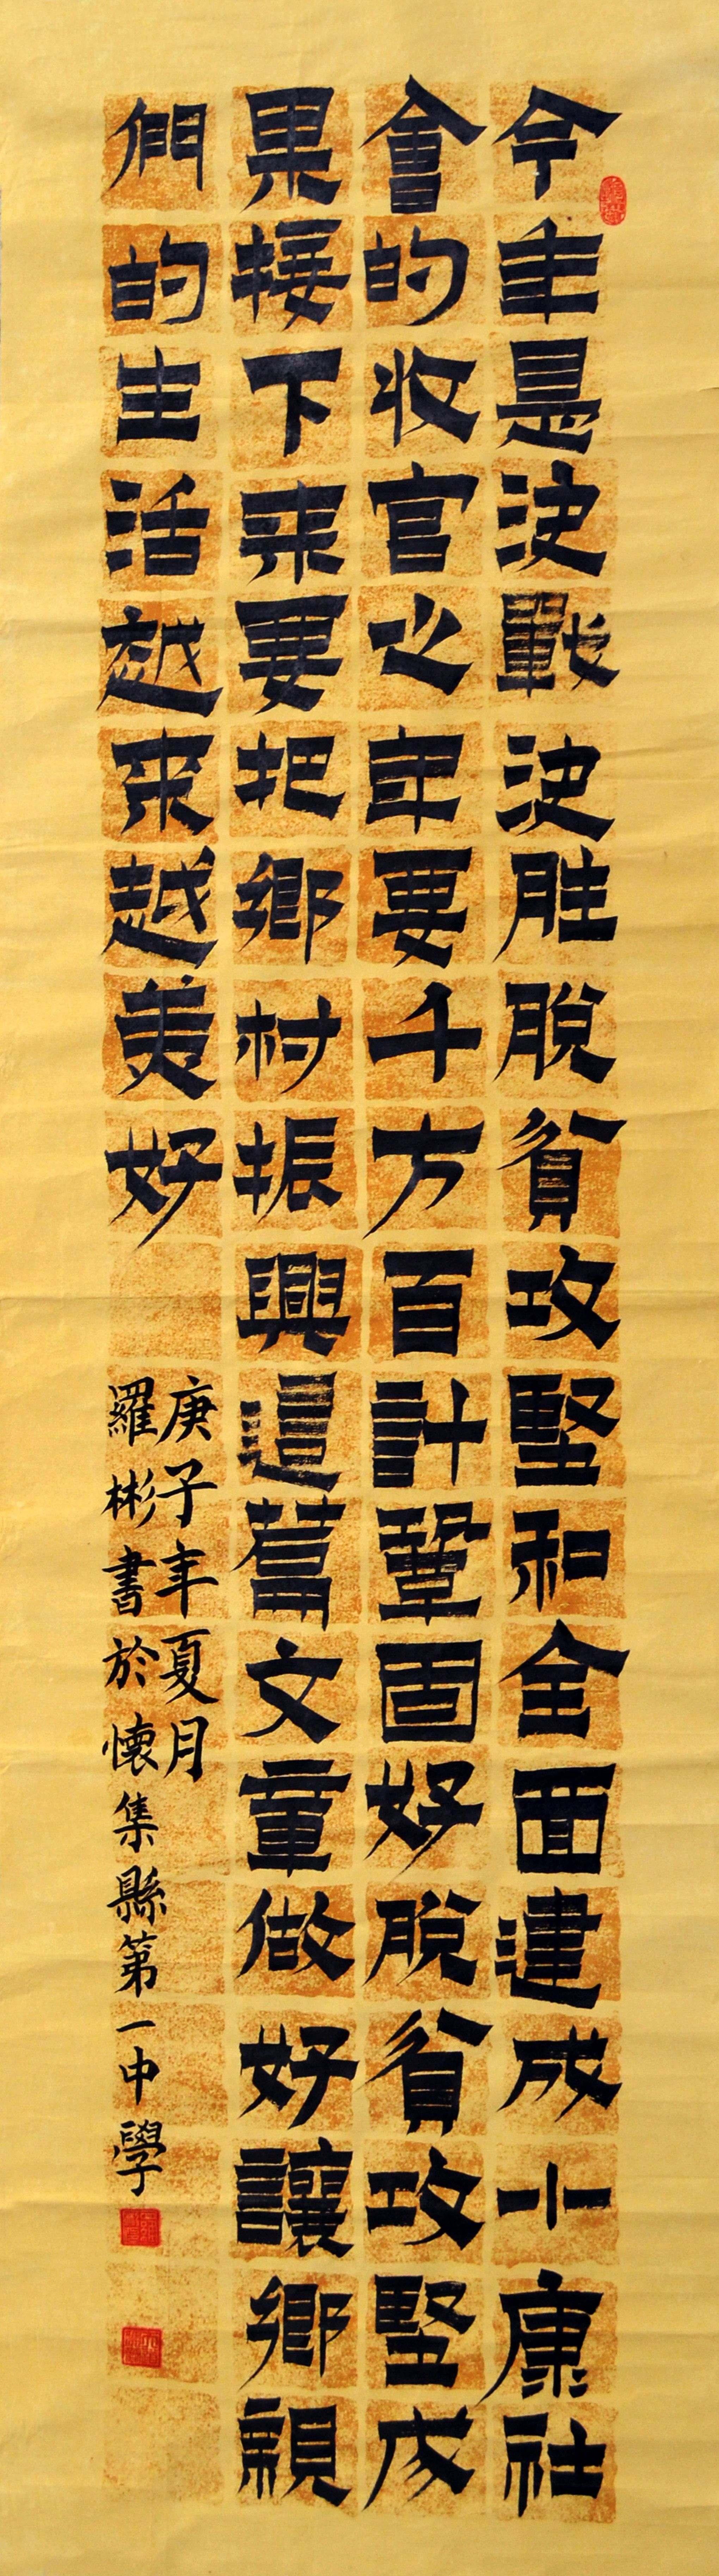 今年是决戰决胜脫貧攻堅和全面建成小康社
會的收官之年要千方百計鞏固好脫貧攻堅成
果接下来要把鄉村振興這篇文章做好讓鄉親
們的生活越来越美好
庚子年夏月
羅彬書於懷集縣第一中學